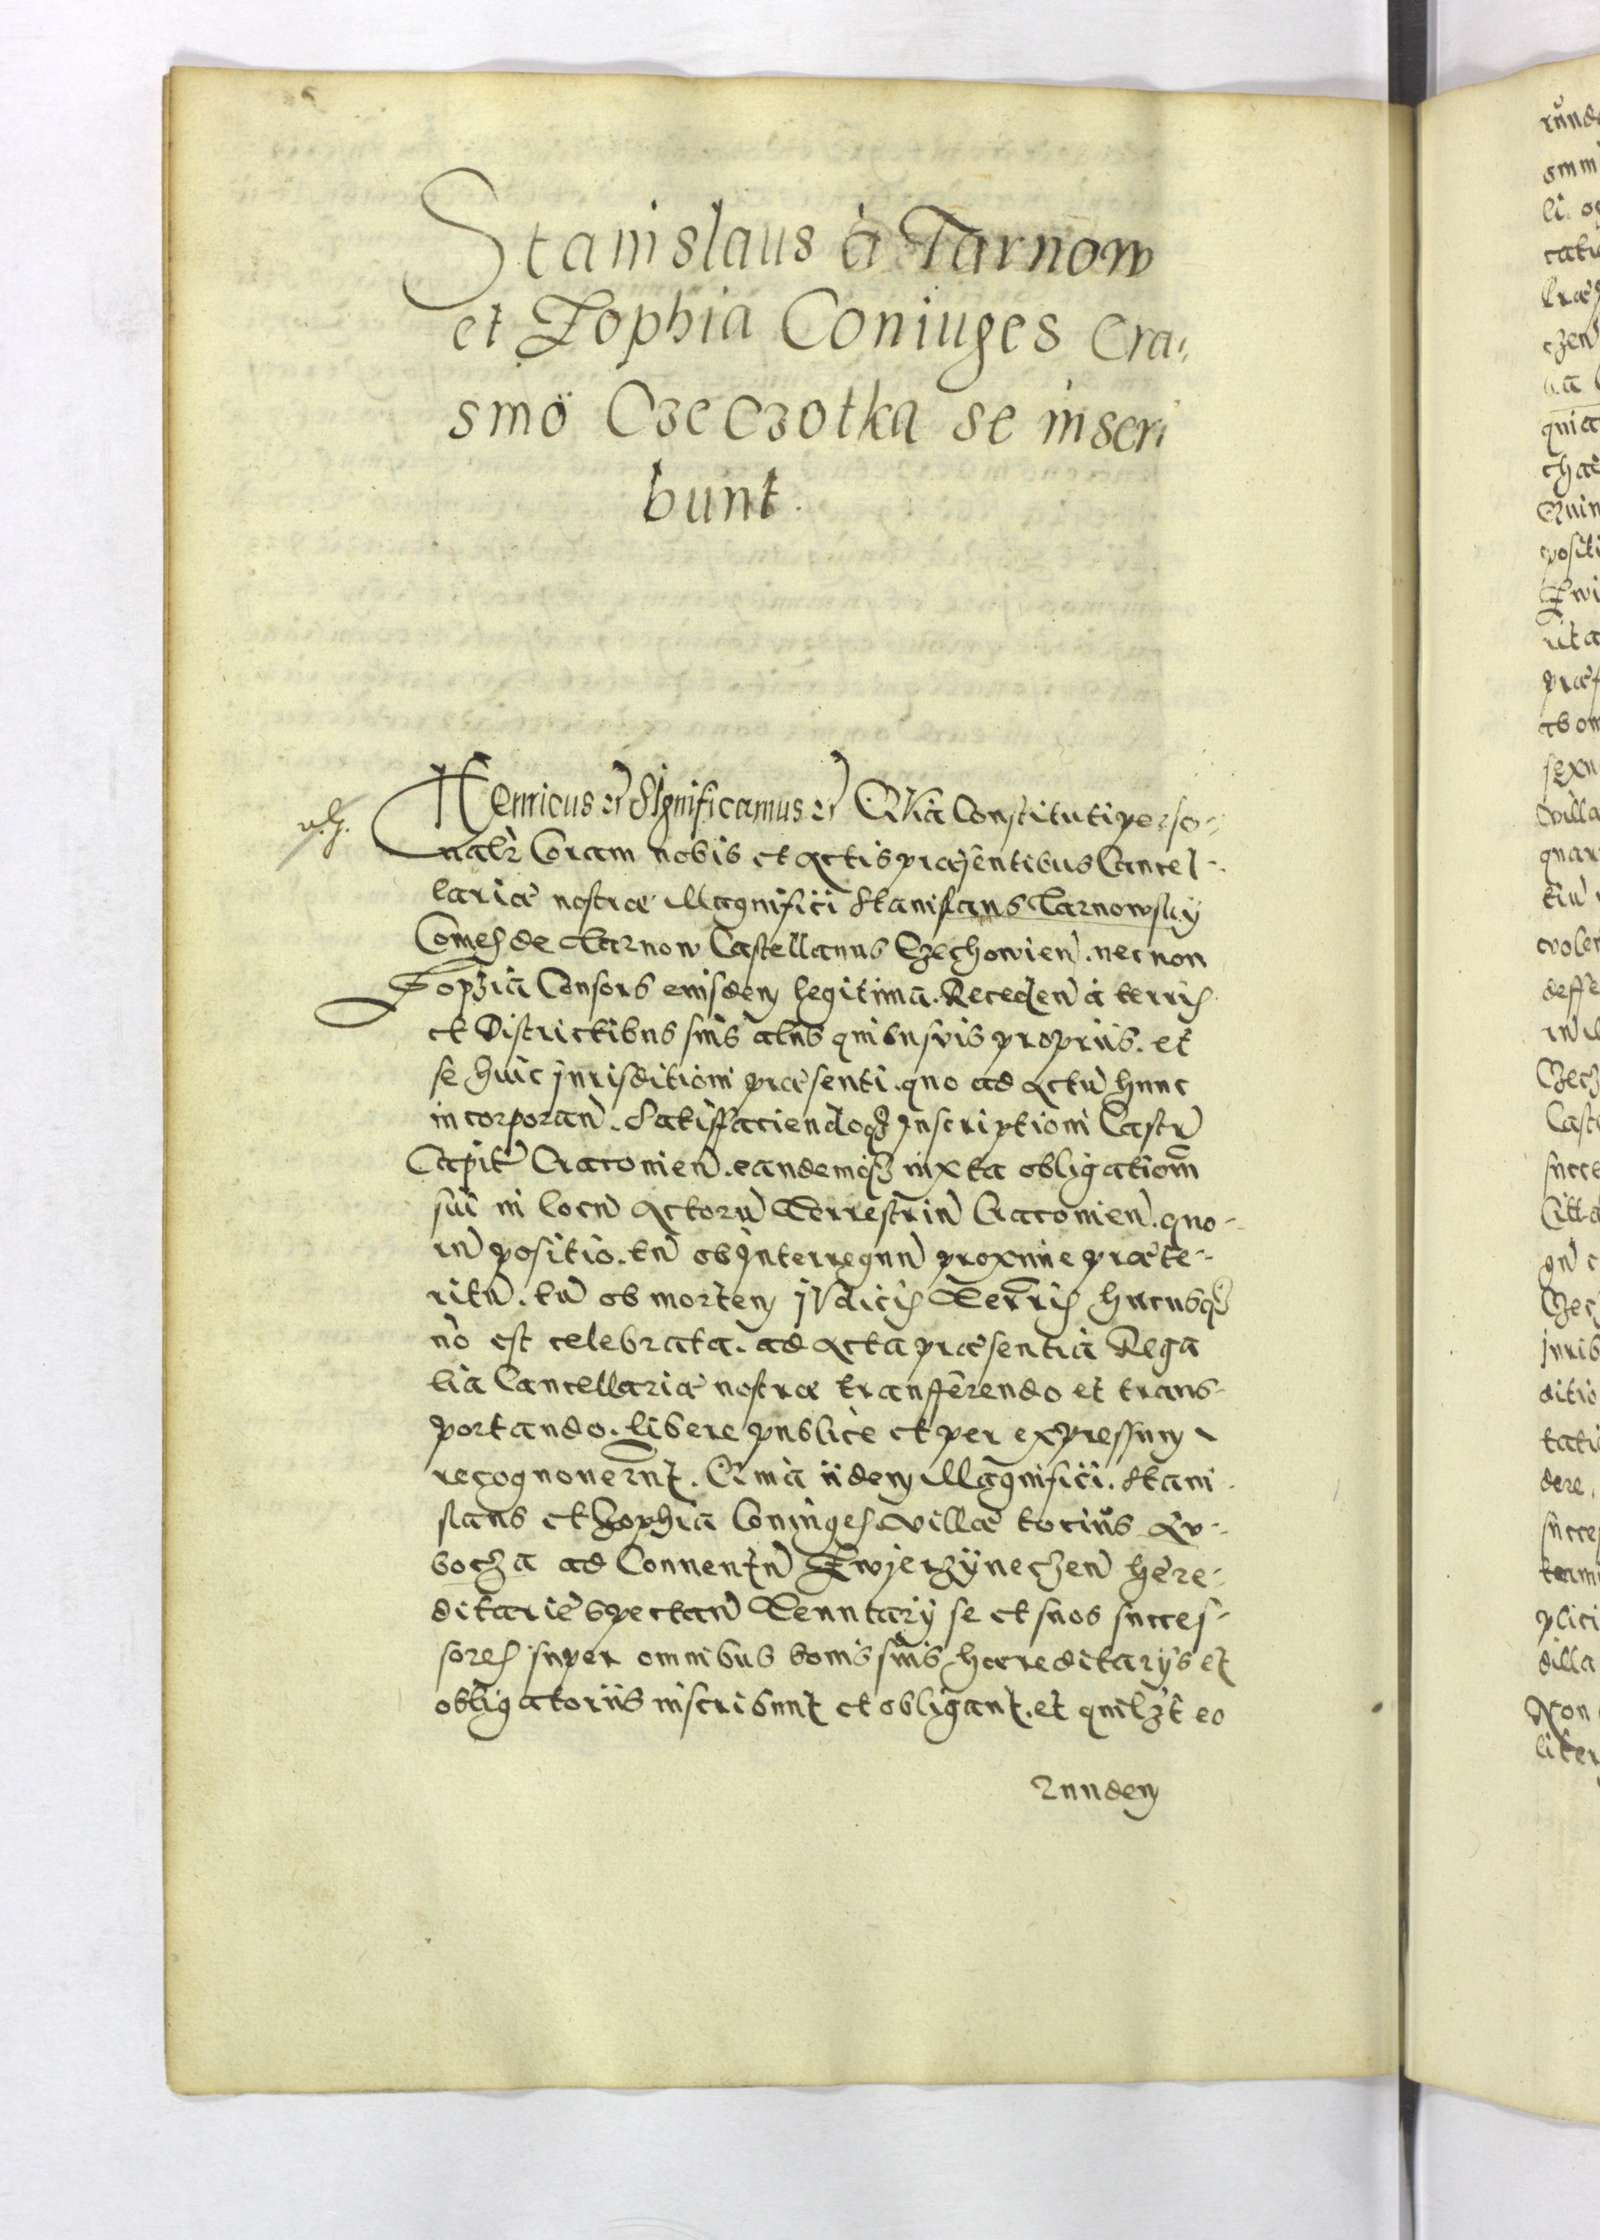 Stanislaus à Tarnow
et Zophia Coniuges Era-
smo Czeczotka se inscri
bunt.
Henricus etc Significamus etc Quia Constituti perso-
nalr Coram nobis et Actis præsentibus Cancel-
lariæ nostræ Magnifici Stanislaus Tarnowsky
Comes de Tarnow Castellanus Czechowien. necnon
Zophia Consors eiusdem legitima. Receden à terris
et Districtibus suis alys quibusvis proprys. et
se huic jurisditioni præsenti. quo ad Actu hunc
incorporan. Satisfaciendoq Inscriptioni Castr
Capit Cracouien. eandemq iuxta obligationm
sui in locu Actoru Terrestriu Cracouien. quo-
ru positio. tu ob Interregnu proxime præte-
ritu. tu ob mortem judicis Terris hucusq
no est celebrata. ad Acta præsentia Rega
lia Cancellariæ nostræ transferendo et trans-
portando. libere publice et per expressum
recognouernt. Quia iidem Magnifici. Stani
slaus et Zophia Coniuges villæ totius
ad Conuentu Zwierzyneczen here-
ditarie spectan Tenutary se et suos succes-
sores super omnibus bonis suis hæreditarys et
obligatoriis inscribunt et obligant. et quilzt eo
rundem